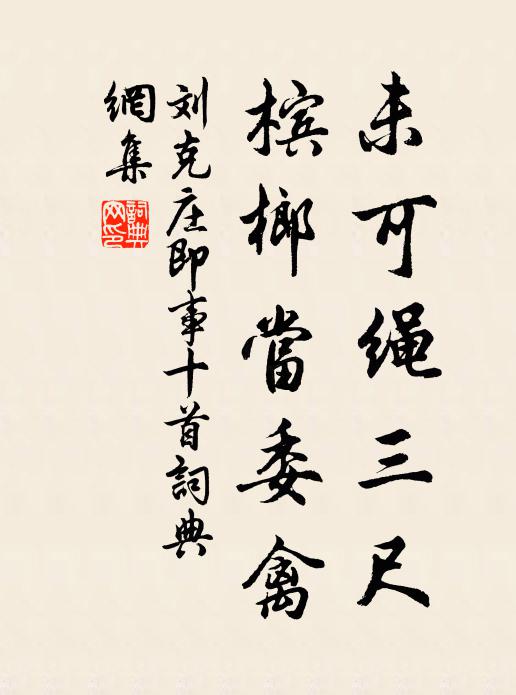 未可绳三尺
槟榔當委禽
刘克庄即事十首詞典
網集
詞典网印